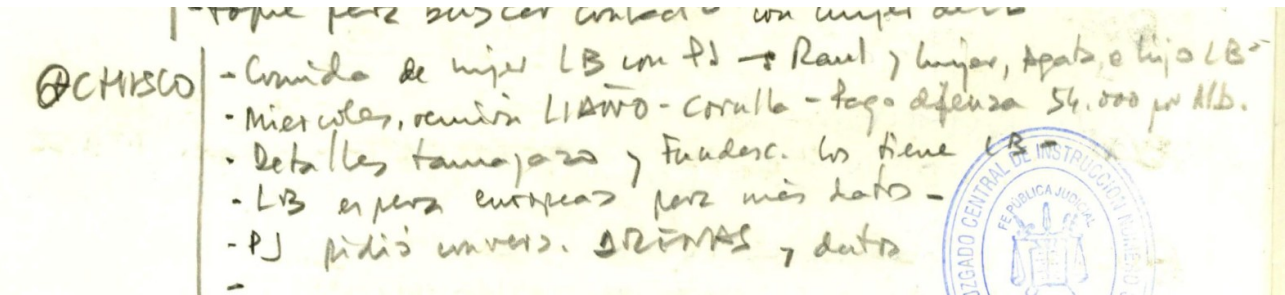 - toque para buscar contacto con mujer de LB
⊕ CHISCO
- Comida de mujer LB con PJ → Raul y mujer, Agata, e hijo LB-
- Miercoles, reunión LIAÑO - Corulla - Pago defensa 54.000 por Alb.
- Detalles tamayazo y Fundesc. los tiene LB -
- LB espera europeas para más datos -
- PJ pidió convers. ARENAS y datos
-
JUZGADO CENTRAL DE INSTRUCCIÓN NÚMERO
FE PÚBLICA JUDICIAL